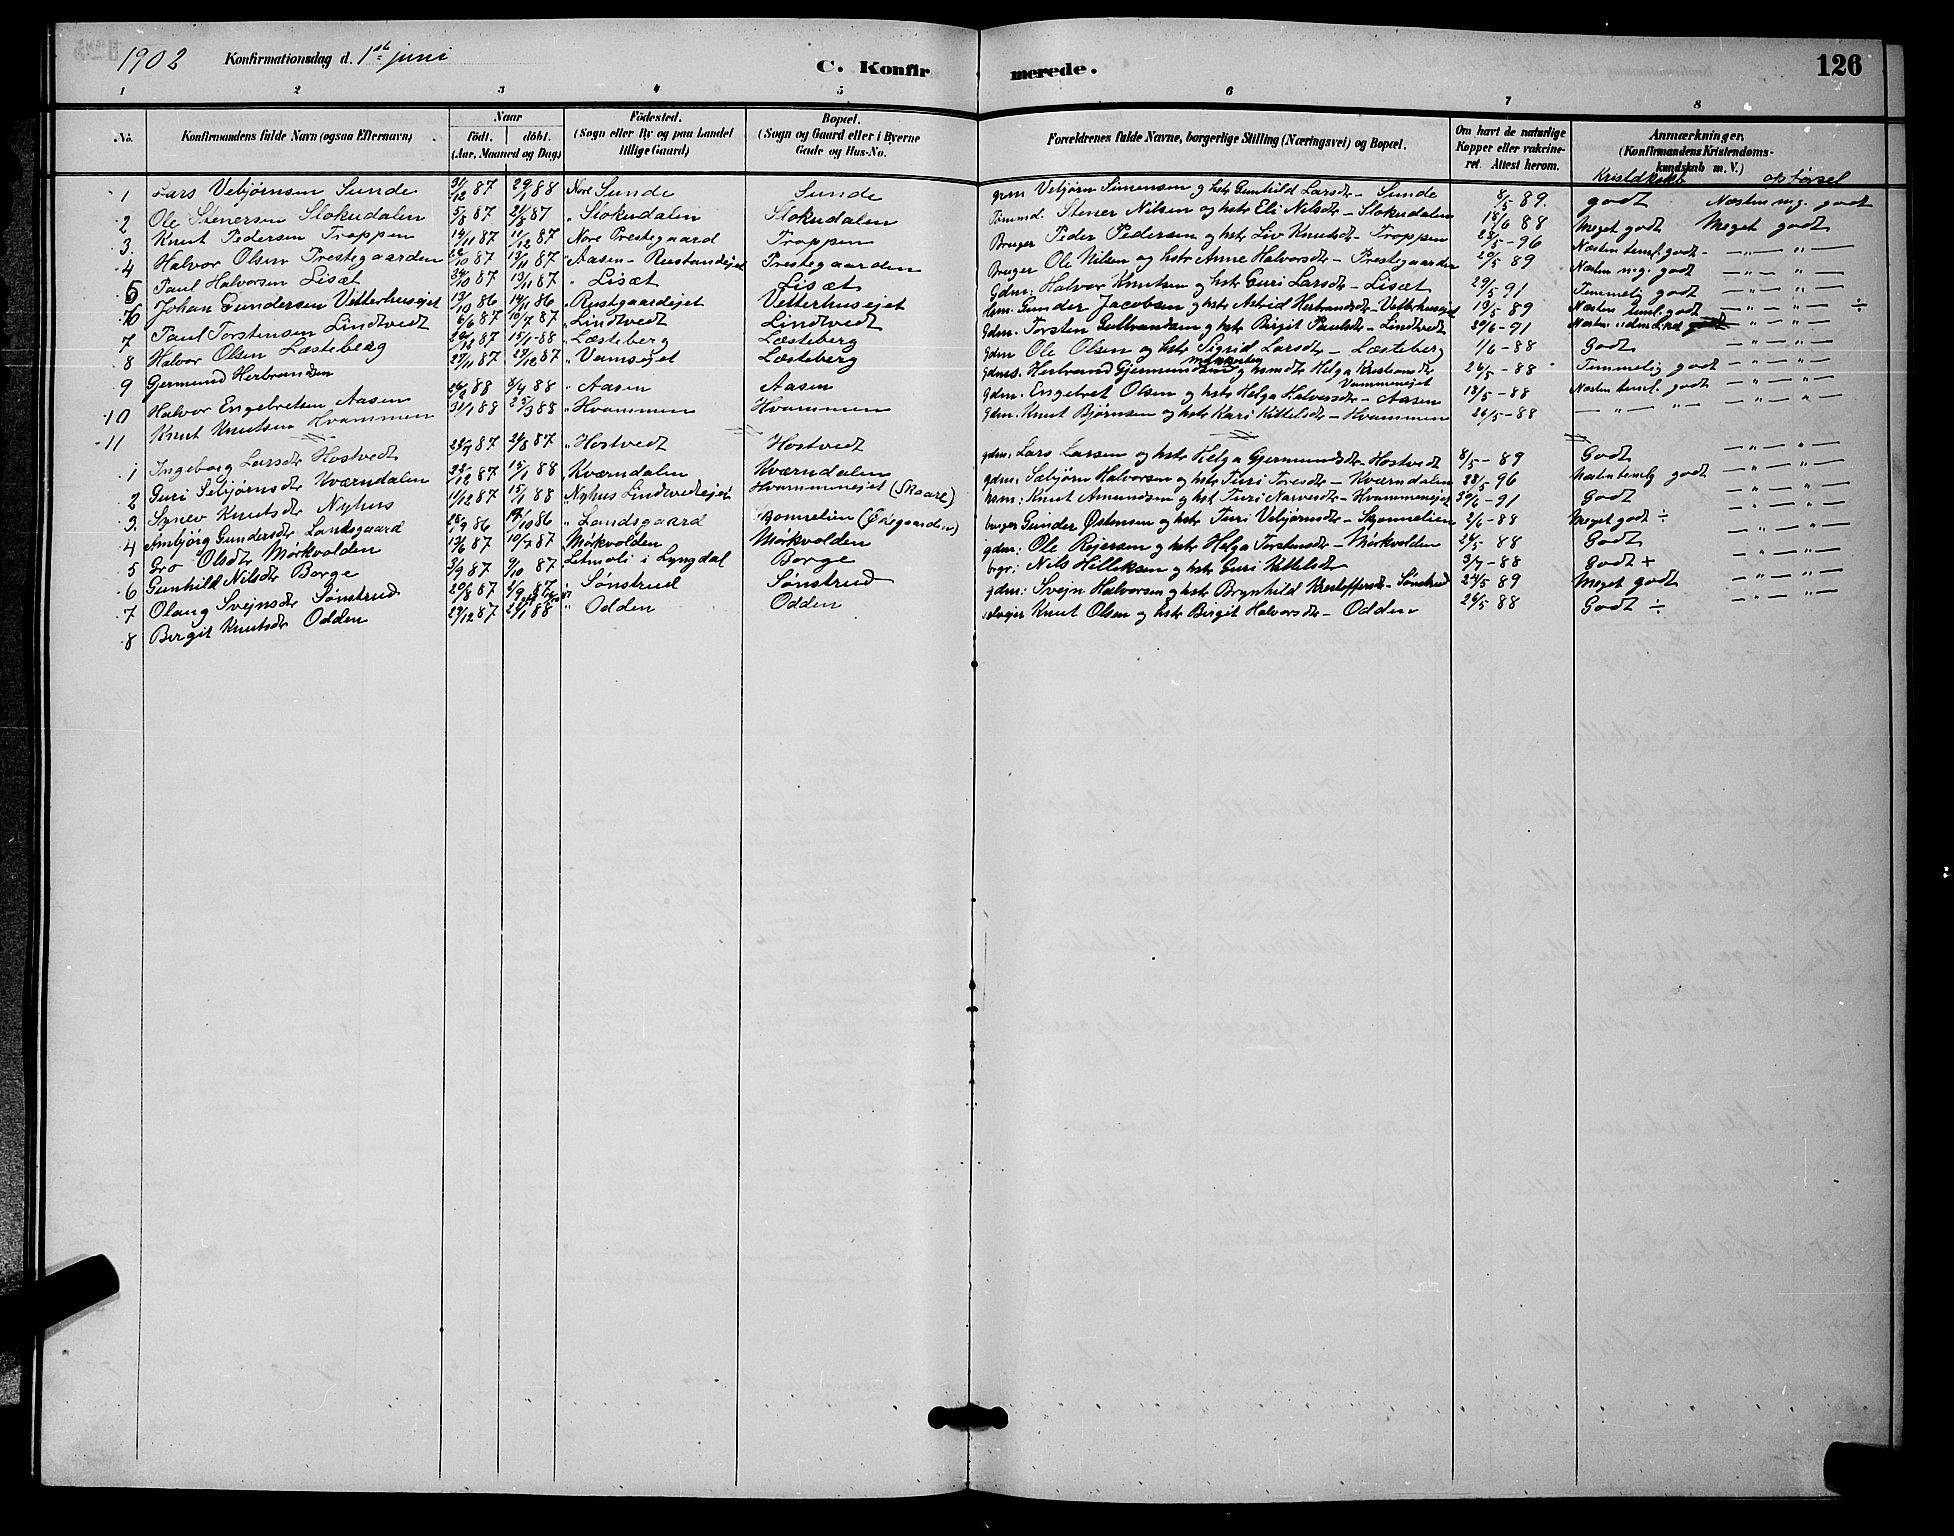 1902 Konfirmationsdag d. 1ste juni C. Konfirmerede. 126
1 2 3 4 5 6 7 8
No. Konfirmandens fulde Navn (ogsaa Efternavn) Naar födt. döbt. (Aar, Maaned og Dag) Födested. (Sogn eller By og paa Landet tillige Gaard) Bopæl. (Sogn og Gaard eller i Byerne Gade og Hus-No. Forældrenes fulde Navne, borgerlige Stilling (Næringsvei) og Bopæl. Om havt de naturlige Kopper eller vakcineret. Attest herom. Anmærkninger. (Konfirmandens Kristendomskundskab m. V.)
Kristdkskb opførsel
1 Lars Vebjørnsen Sunde 31/12 87 29/1 88 Nore Sunde Sunde Vebjørn Simensen og hstr Gunhild Larsdr – Sunde 8/5 89. godt Næsten mg. godt
2 Ole Stenersen Stokudalen 5/8 87 21/8 87 " Stokudalen Stokudalen Stener Nilsen og hstr Eli Nilsdr – Stokudalen 18/6 88 Meget godt Meget godt
3. Knut Pedersen Troppen 19/11 87 11/12 87 Nore Prestegaard Troppen Bruger Peder Pedersen og hstr Liv Knutsdr – Troppen 28/5 – 96 Næsten teml. godt – " – " –
4 Halvor Olsen Prestegaarden /10 87 13/11 87 " Aasen – Rustandejet Prestegaarden Bruger Ole Nilsen og hstr Anne Halvorsdr – Prestegaarden 20/5 89 Næsten mg. godt – " – " –
5 Paul Halvorsen Lisæt 24/10 87 13/11 87 " Lisæt Lisæt Gdm: Halvor Knutsen og hstr Guri Larsdr – Lisæt 29/5 91 Temmelig godt – " – " –
6 Johan Gundersen Vetterhusejet 13/10 86 14/11 86 " Rustgaardejet Vetterhusejet Gunder Jacobsen og hstr Astrid Herbrandsdr – Vetterhusejet 13/5 – 89 Næsten teml. godt – " – " – ÷
7 Paul Torstensen Lindtvedt 6/6 87 10/7 87 " Lindtvedt Lindtvedt Gdm. Torsten Gulbrandsen og hstr Birgit Paulsdr – Lindtvedt 20/6 – 91 – " – " –
8 Halvor Olsen Læsteberg 20/12 87 15/1 – 88 " Læsteberg Læsteberg gdm Ole Olsen og hstr Sigrid Larsdr – Læsteberg 1/6 – 88 Godt – " – " –
9 Gjermund Herbrandsen 27/11 87 29/12 87 " Vamsejet Læsteberg Herbrand Gjermundsen og Helga Kristiansdr Vammenejet 26/5 – 88 Temmelig godt – " – " –
10 Halvor Engebretsen Aasen 26/2 88 8/4 88 " Aasen Aasen gdm. Engebret Olsen og hstr Helga Halvorsdr – Aasen 18/5 – 88 Næsten teml. godt – " – " –
11 Knut Knutsen Hvammen 31/1 88 25/3 88 " Hvammen Hvammen gdm. Knut Bjørnsen og hstr Kari Kittelsdr – Hvammen 26/5 – 88 – " – " – – " – " –
1 Ingeborg Larsdr Hostvedt 23/7 87 21/8 87 " Hostvedt Hostvedt gdm. Lars Larsen og hstr Helga Gjermundsdr – Hostvedt 8/5 – 89 Godt – " – " –
2 Guri Sebjørnsdr Kværndalen 23/12 87 15/1 88 " Kværndalen Kværndalen gdm. Sæbjørn Halvorsen og hstr Turi Toresdr – Kværndalen 28/5 – 96 Næsten temlg godt – " – " –
3 Synev Knutsdr Nyhus 11/12 87 15/1 88 " Nyhus Lindtvedtejet Hvammenejet (Skaare) Knut Amundsen og hst Turi Narvesdr – Hvammenejet 30/6 – 91 Godt – " – " –
4 Ambjørg Gundersdr Landsgaard 28/9 86 17/10 86 " Landsgaard Bonnelien (Øregaarden) bruger Gunder Østensen og hstr Turi Vebjørnsdr – Skjonnelien 2/6 – 88 Meget godt ÷ – " – " –
5 Gro Olsdr Mørkvolden 13/6 87 10/7 87 " Mørkvolden Mørkvolden gdm: Ole Rejersen og hstr Helga Torstensdr – Mørkvolden 24/5 – 88 Godt – " – " –
6 Gunhild Nilsdr Borge 3/9 87 9/10 87 Letmoli i Lyngdal Borge bngr: Nils Hilleksen og hstr Guri Kittelsdr 3/7 – 88 Godt + – " – " –
7 Olaug Svejnsdr Sønstrud 20/8 87 2/9 87 " Sønstrud Sønstrud gdm: Svejn Halvorsen og hstr Brynhild Kristoffersdr – Sønstrud 24/5 89 Meget godt – " – " –
8 Birgit Knutsdr Odden 29/12 87 29/1 88 " Odden Odden Knut Olsen og hstr Birgit Halvorsdr – Odden 26/5 – 88 Godt ÷ – " – " –